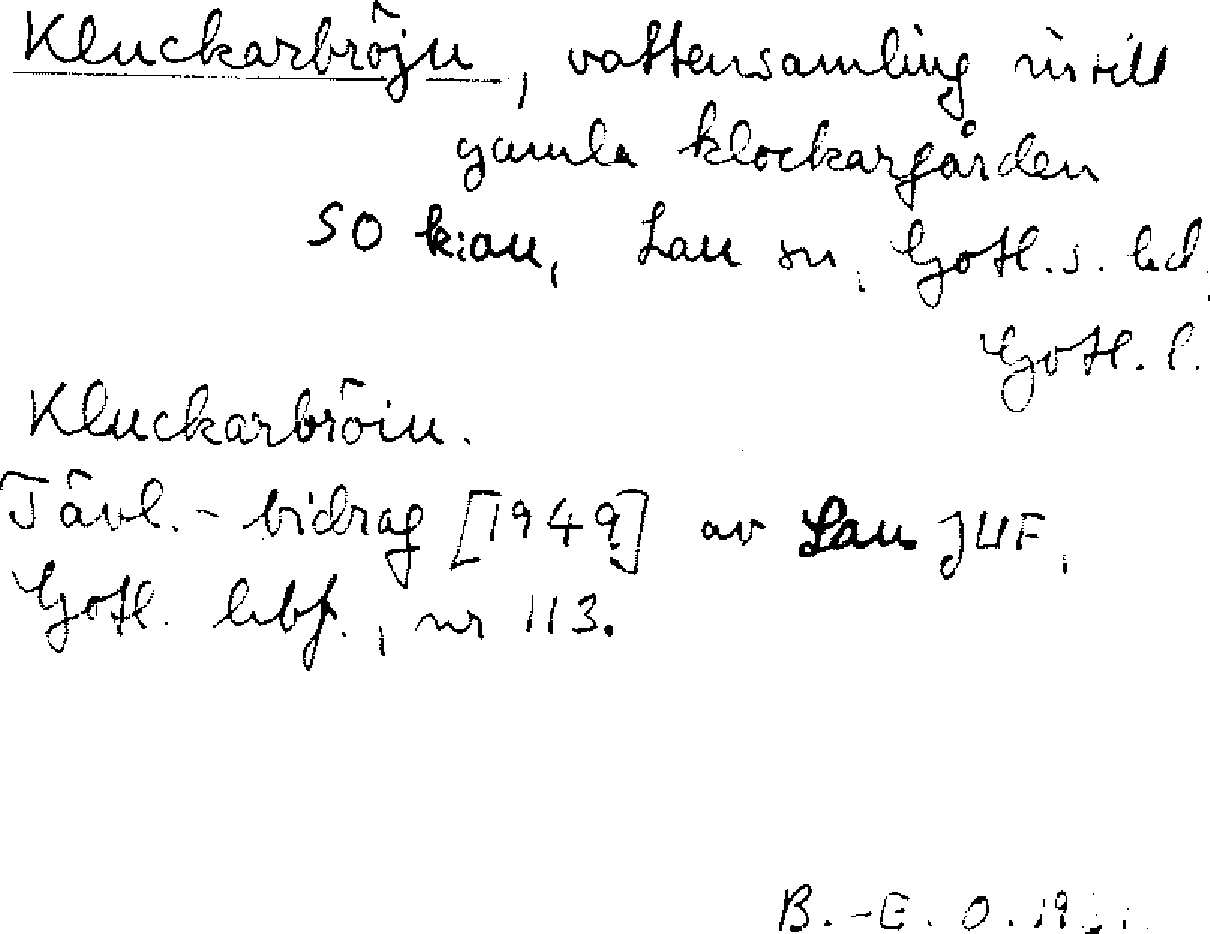 Kluckarbröju, vattensamling invill
gamla klockargården
SO kian, Lau sn, Gotl. s. hd,
Gotl. l.
Kluckarbröiu.
Tävl.-bidrag [1949] av Lau JUF,
Gotl. hbf., nr 113.
B.-E. O.